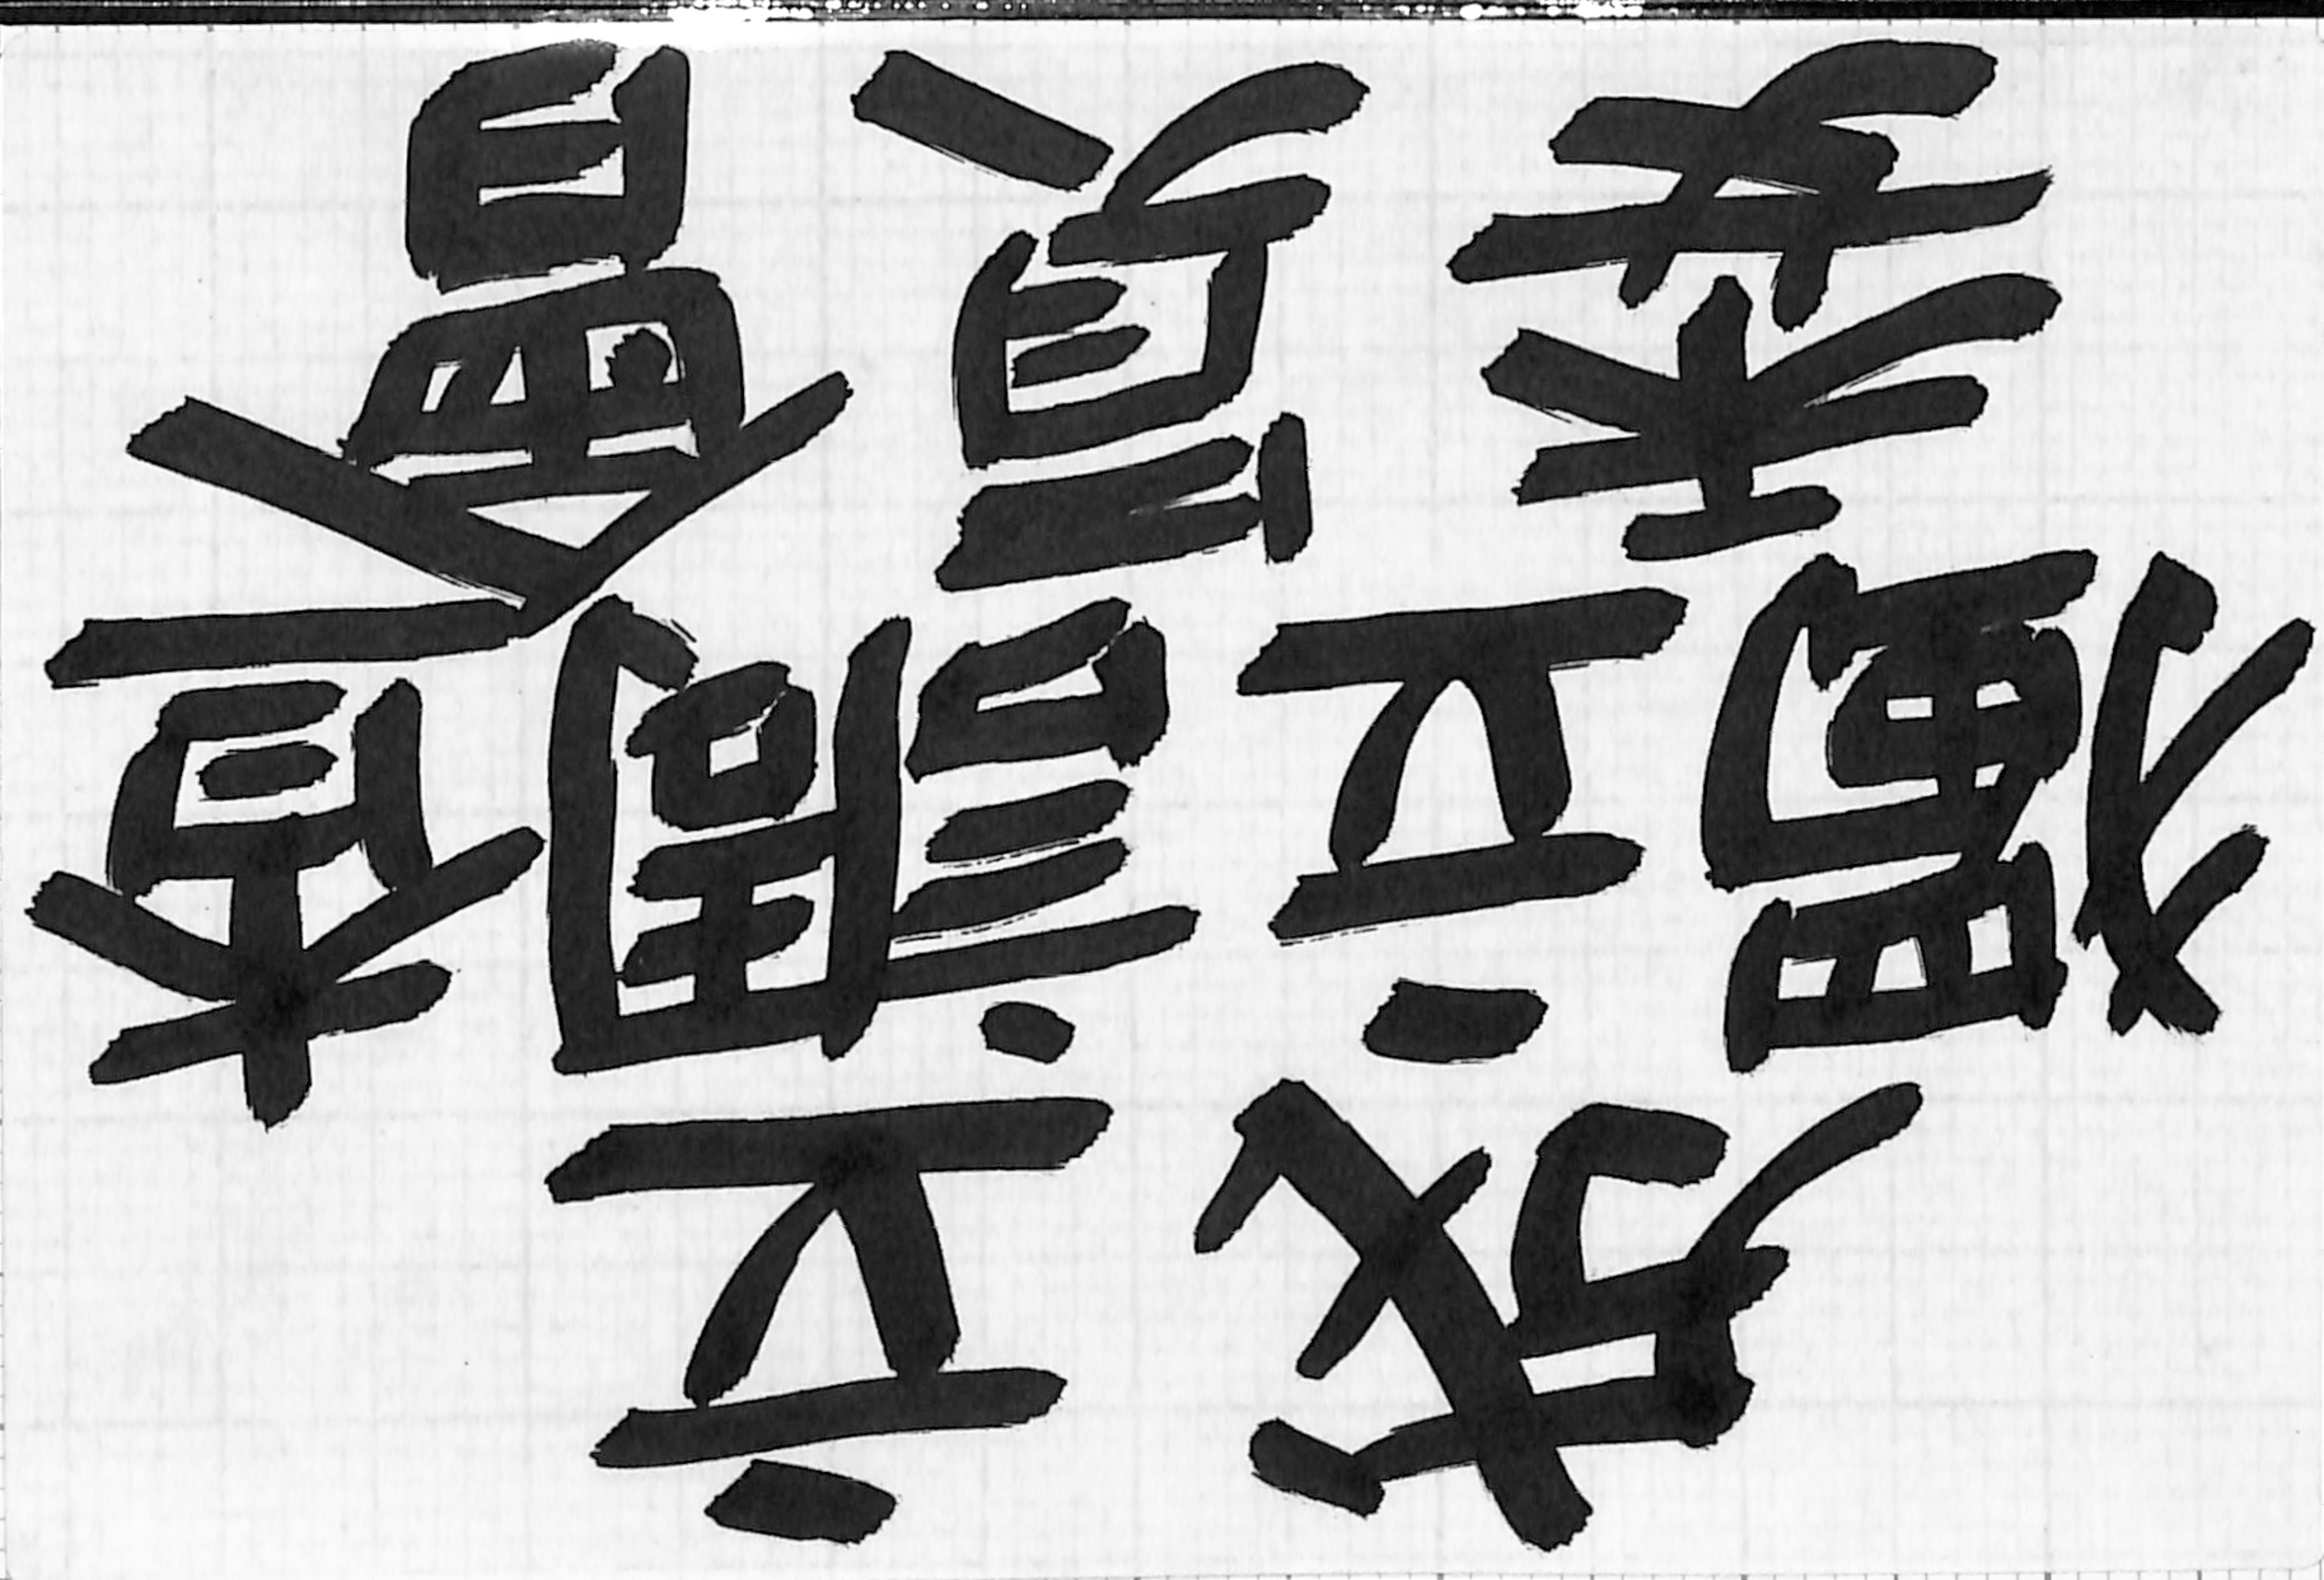 成立
獨立調查
委員會